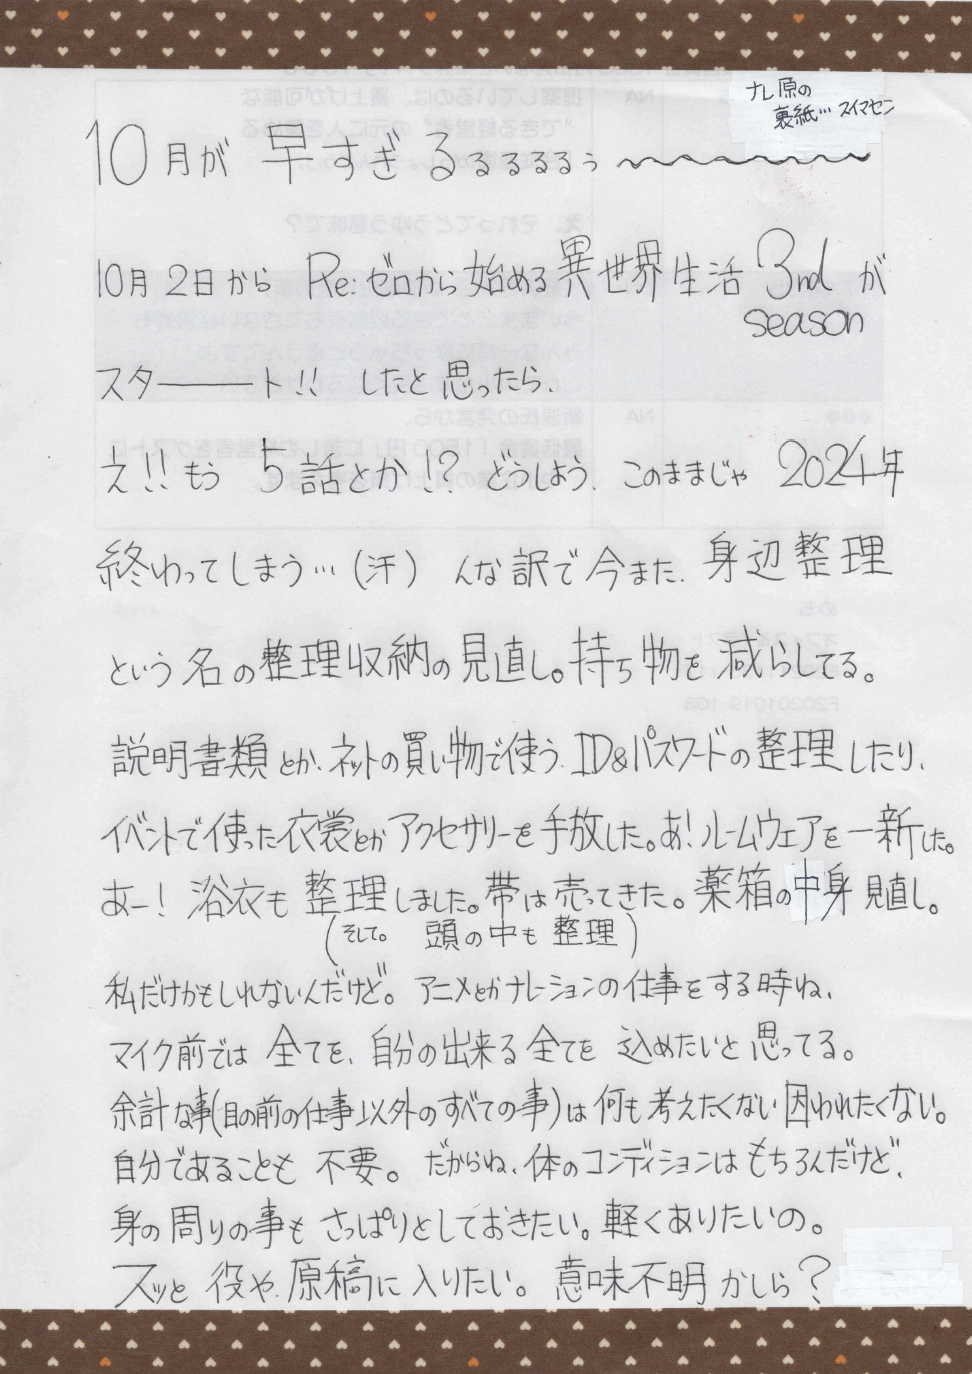 ナレ原の
裏紙… スイマセン
10月が 早すぎるるるるるぅ〜〜〜〜〜〜
10月2日から Re:ゼロから始める異世界生活 3rd season が
スター――ト!! したと思ったら、
え!! もう 5話とか!? どうしよう、このままじゃ 2024年
終わってしまう…(汗) んな訳で今また、身辺整理
という名の整理収納の見直し。持ち物を減らしてる。
説明書類とか、ネットの買い物で使う、ID&パスワードの整理したり、
イベントで使った衣裳とかアクセサリーを手放した。あ! ルームウェアを一新した。
あー! 浴衣も整理しました。帯は売ってきた。薬箱の中身見直し。
(そして。 頭の中も整理)
私だけかもしれないんだけど。アニメとかナレーションの仕事をする時ね、
マイク前では 全てを、自分の出来る全てを 込めたいと思ってる。
余計な事(目の前の仕事以外のすべての事)は何も考えたくない 囚われたくない。
自分であることも 不要。だからね、体のコンディションはもちろんだけど、
身の周りの事も さっぱりとしておきたい。軽くありたいの。
スッと 役や、原稿に入りたい。意味不明かしら?